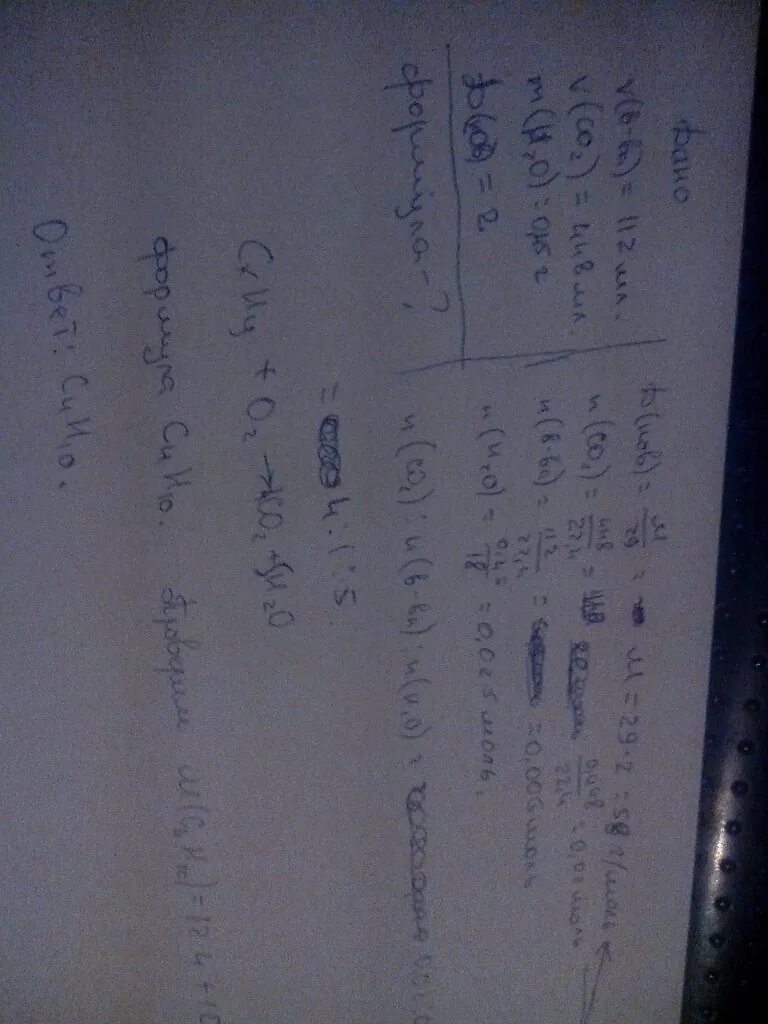 Дано
V(в-ва) = 112 мл.
V(CO2) = 448 мл.
m(H2O) = 0,45 г
D(возд) = 2
формула - ?
D(возд) = M/29 = M = 29·2 = 58 г/моль
n(CO2) = 448/22,4 = 0,448/22,4 = 0,02 моль
n(в-ва) = 112/22,4 = = 0,005 моль
n(H2O) = 0,45/18 = 0,025 моль.
n(CO2) : n(в-ва) : n(H2O) =
= 4:1:5
CxHy + O2 → 4CO2 + 5H2O
формула C4H10. Проверим M(C4H10) = 12·4 + 10
Ответ: C4H10.